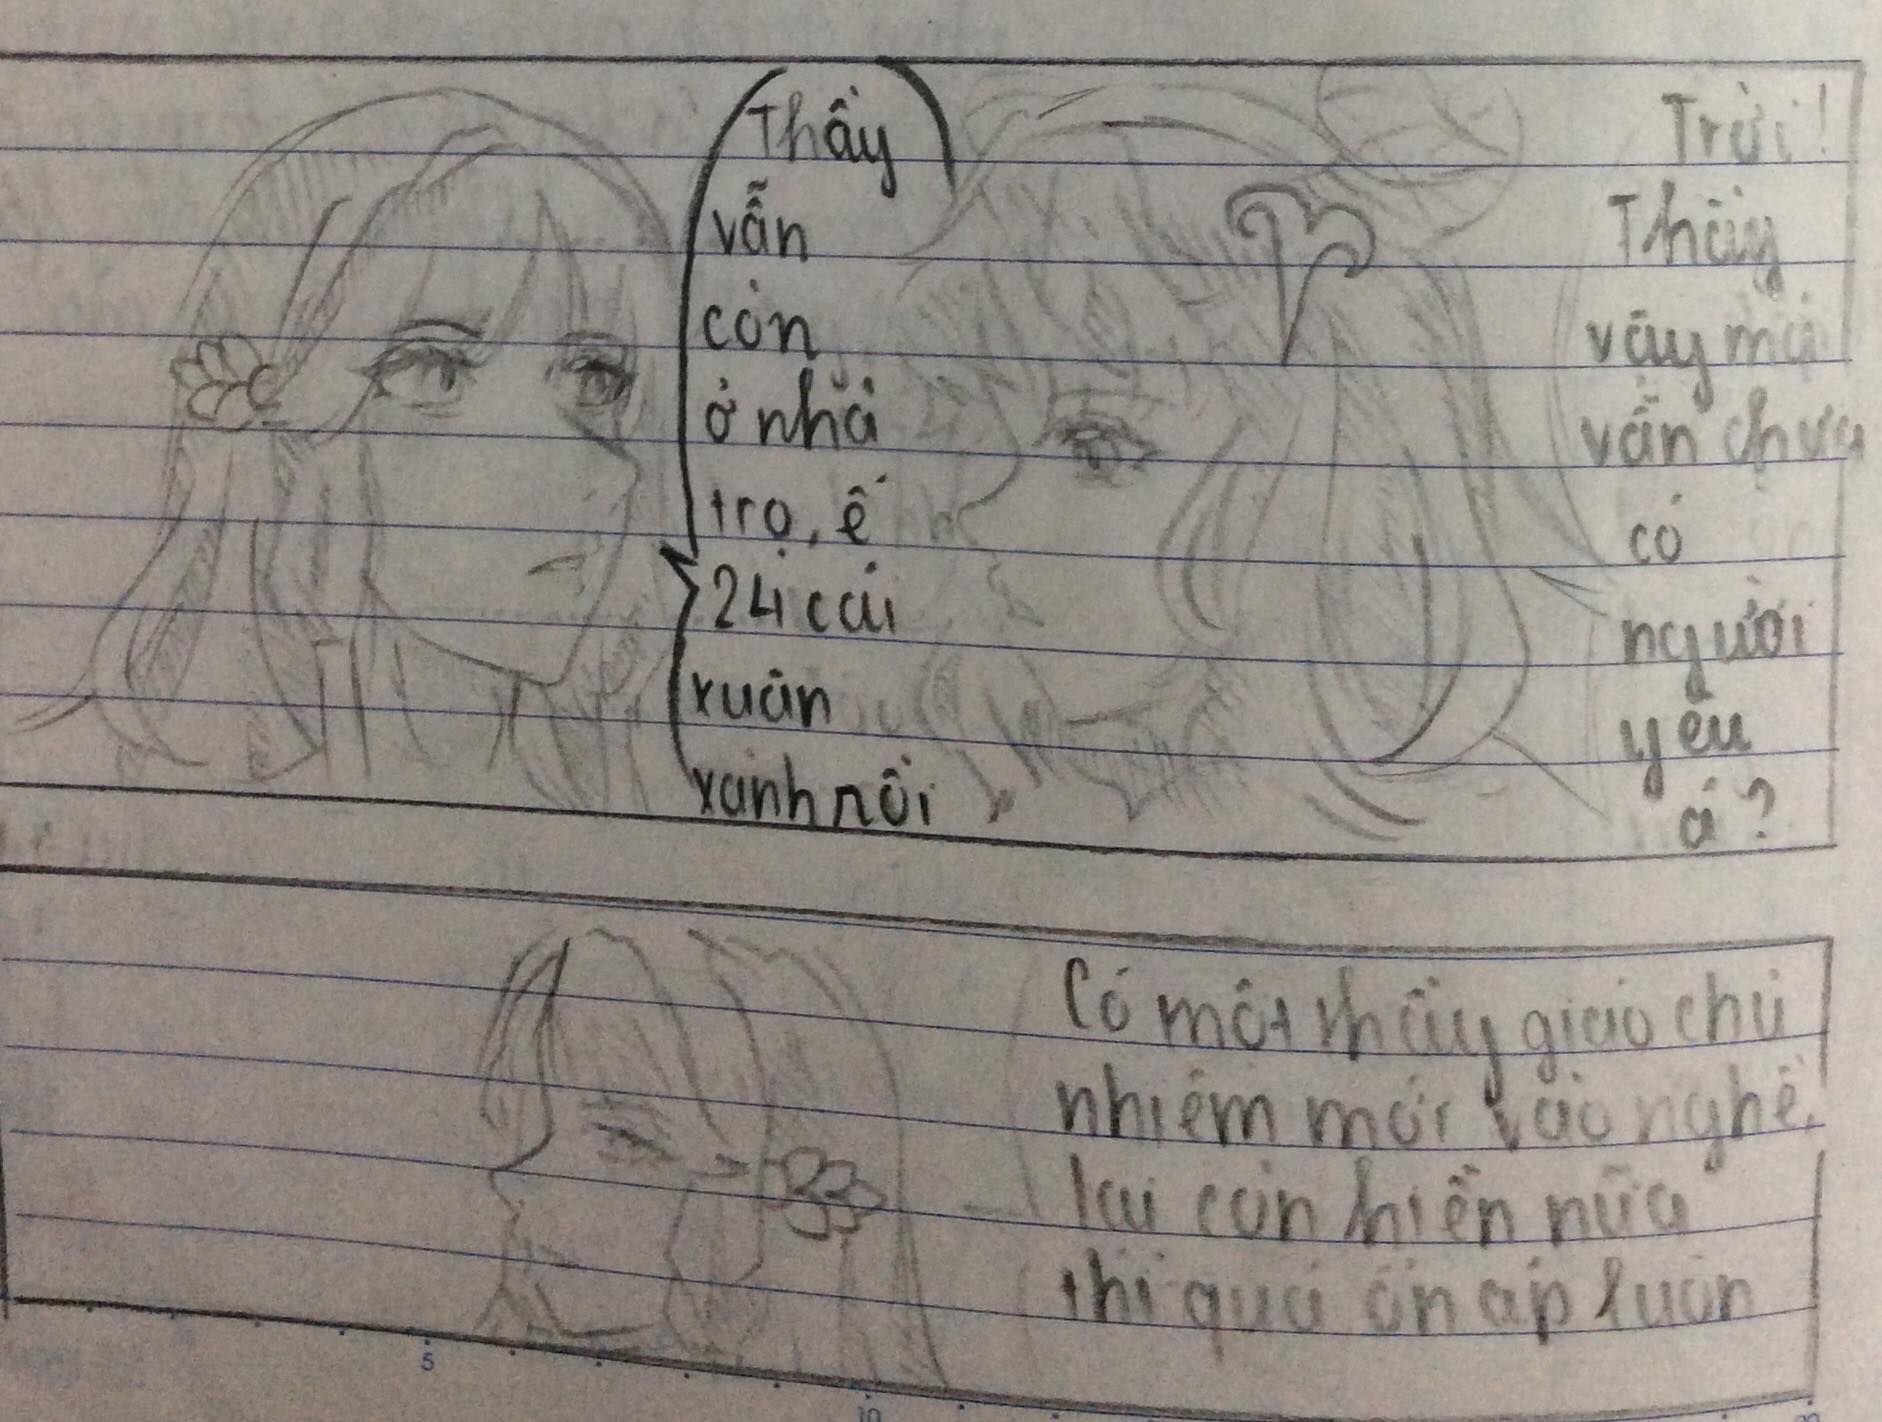 Thầy
vẫn
còn
ở nhà
trọ, ế
24 cái
xuân
xanh rồi
Trời!
Thầy
vậy mà
vẫn chưa
có
người
yêu
á?
Có một thầy giáo chủ
nhiệm mới vào nghề
lại còn hiền nữa
thì quá ổn áp luôn
5
10